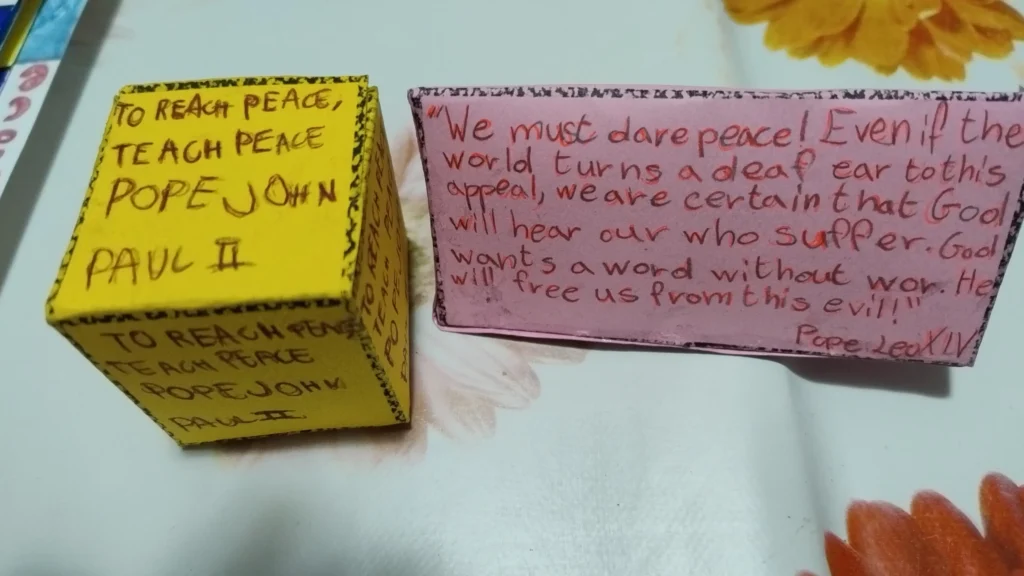 TO REACH PEACE,
TEACH PEACE
POPE JOHN
PAUL II
TO REACH PEACE
TEACH PEACE
POPE JOHN
PAUL II
TO REACH
TEACH
PO
"We must dare peace! Even if the
world turns a deaf ear to this
appeal, we are certain that God
will hear our who suffer. God
wants a word without wor. He
will free us from this evil!"
Pope Leo XIV